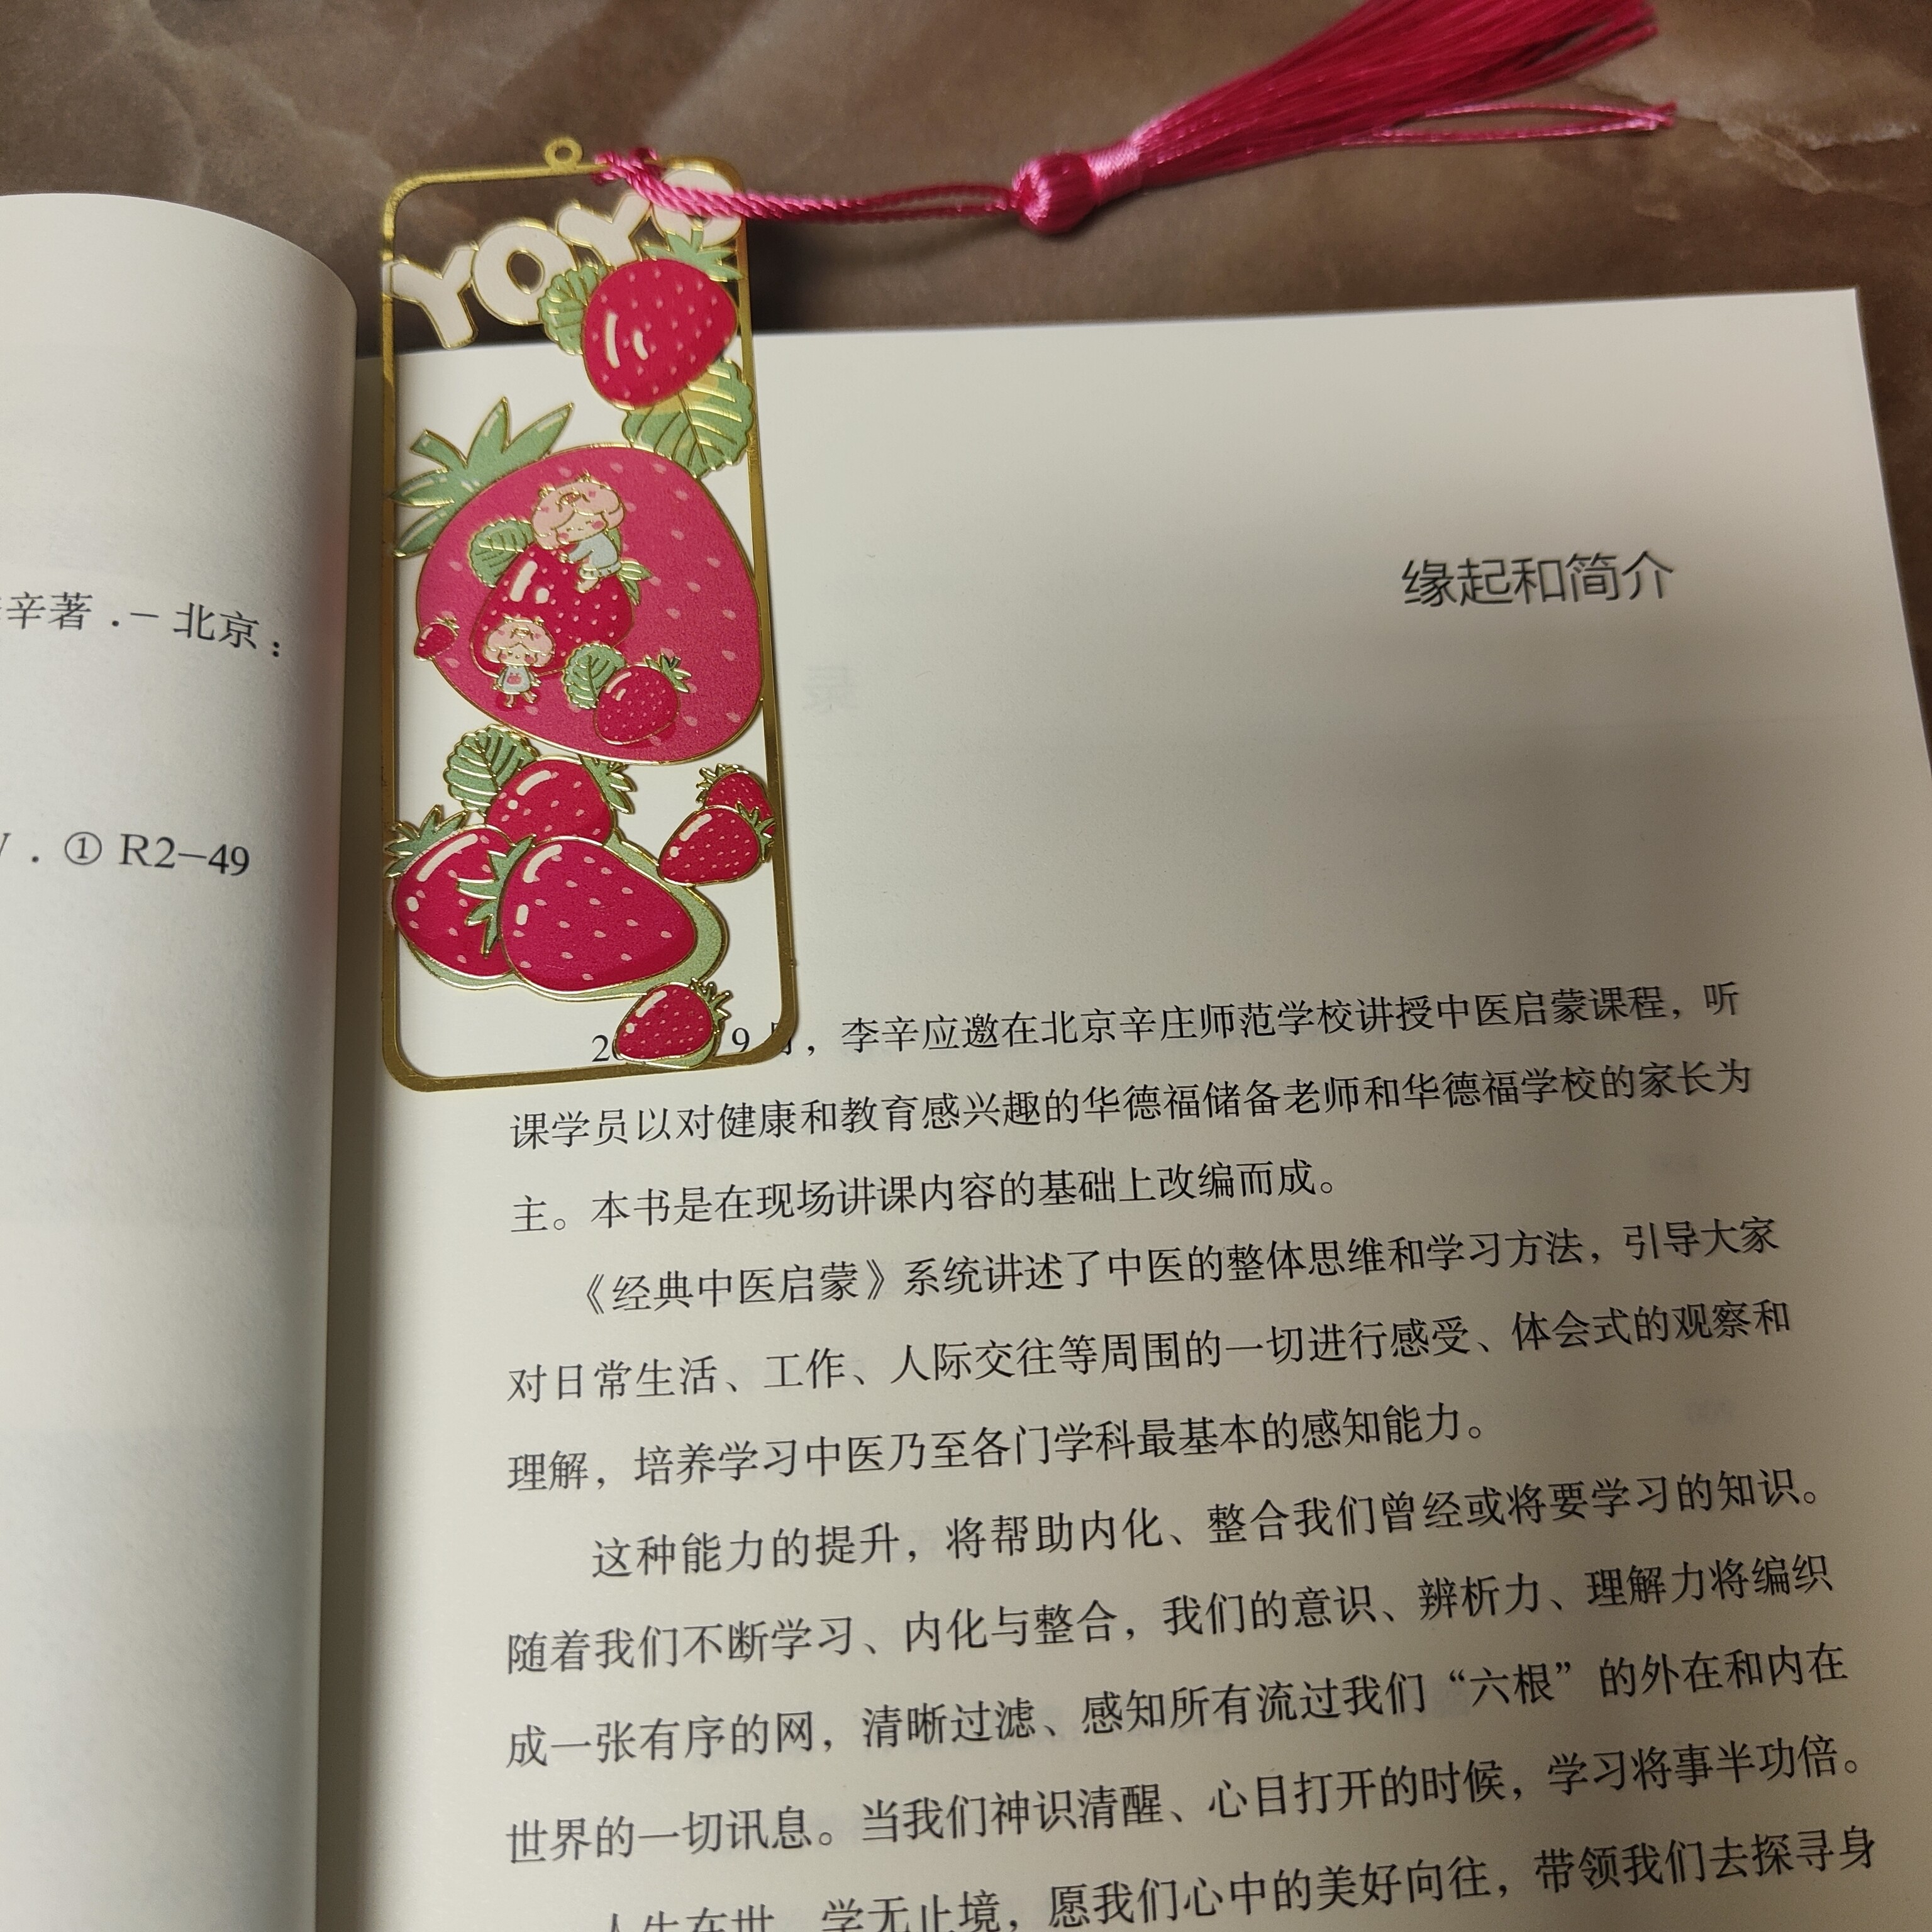 辛著 .— 北京：
. ① R2-49
YOYO
缘起和简介
9月，李辛应邀在北京辛庄师范学校讲授中医启蒙课程，听
课学员以对健康和教育感兴趣的华德福储备老师和华德福学校的家长为
主。本书是在现场讲课内容的基础上改编而成。
《经典中医启蒙》系统讲述了中医的整体思维和学习方法，引导大家
对日常生活、工作、人际交往等周围的一切进行感受、体会式的观察和
理解，培养学习中医乃至各门学科最基本的感知能力。
这种能力的提升，将帮助内化、整合我们曾经或将要学习的知识。
随着我们不断学习、内化与整合，我们的意识、辨析力、理解力将编织
成一张有序的网，清晰过滤、感知所有流过我们“六根”的外在和内在
世界的一切讯息。当我们神识清醒、心目打开的时候，学习将事半功倍。
人生在世，学无止境，愿我们心中的美好向往，带领我们去探寻身